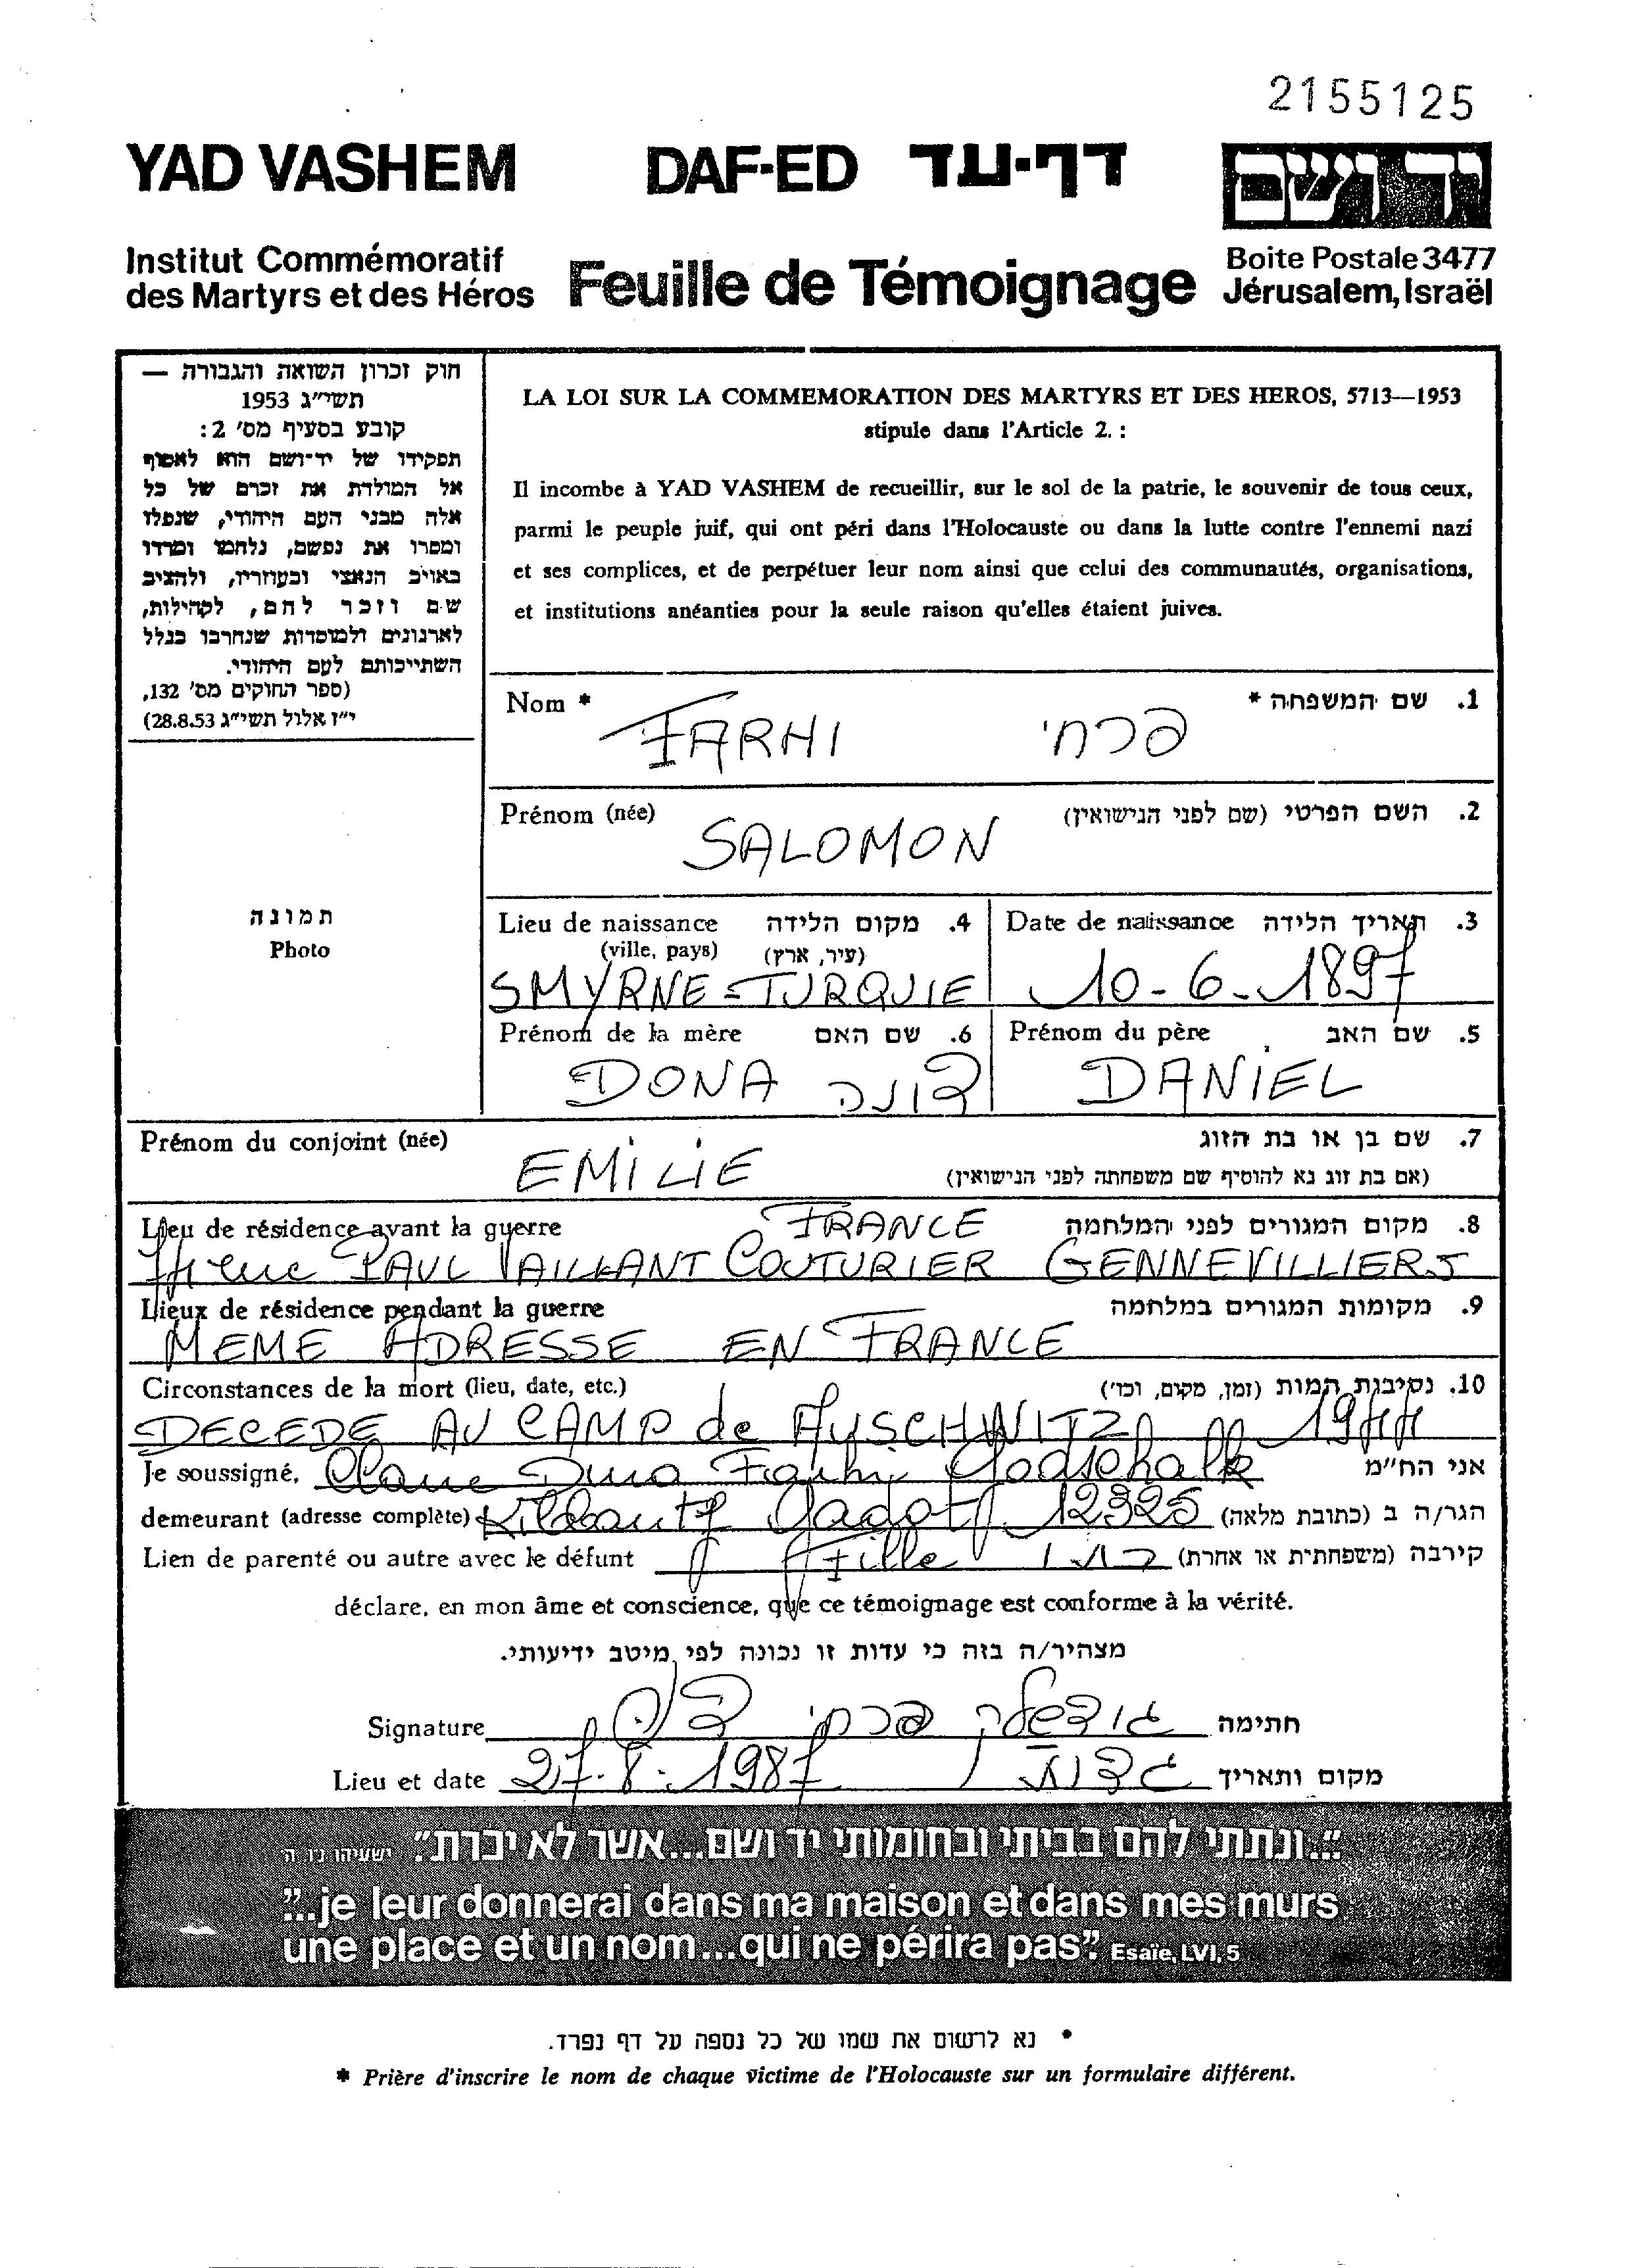 2155125
YAD VASHEM DAF-ED דף-עד יד ושם
Institut Commémoratif
des Martyrs et des Héros
Feuille de Témoignage
Boite Postale 3477
Jérusalem, Israël
חוק זכרון השואה והגבורה —
תשי"ג 1953
קובע בסעיף מס' 2:
תפקידו של יד-ושם הוא לאסוף
אל המולדת את זכרם של כל
אלה מבני העם היהודי, שנפלו
ומסרו את נפשם, נלחמו ומרדו
באויב הנאצי ובעוזריו, ולהציב
שם וזכר להם, לקהילות,
לארגונים ולמוסדות שנחרבו בגלל
השתייכותם לעם היהודי.
(ספר החוקים מס' 132,
י"ז אלול תשי"ג 28.8.53)
LA LOI SUR LA COMMEMORATION DES MARTYRS ET DES HEROS, 5713—1953
stipule dans l'Article 2. :
Il incombe à YAD VASHEM de recueillir, sur le sol de la patrie, le souvenir de tous ceux,
parmi le peuple juif, qui ont péri dans l'Holocauste ou dans la lutte contre l'ennemi nazi
et ses complices, et de perpétuer leur nom ainsi que celui des communautés, organisations,
et institutions anéanties pour la seule raison qu'elles étaient juives.
Nom * 1. שם המשפחה *
FARHI פרחי
Prénom (née) 2. השם הפרטי (שם לפני הנישואין)
SALOMON
תמונה
Photo
Lieu de naissance 4. מקום הלידה
(ville, pays) (עיר, ארץ)
SMYRNE = TURQUIE
Date de naissance 3. תאריך הלידה
10-6-1897
Prénom de la mère 6. שם האם
DONA דונה
Prénom du père 5. שם האב
DANIEL
Prénom du conjoint (née) 7. שם בן או בת הזוג
EMILIE (אם בת זוג נא להוסיף שם משפחתה לפני הנישואין)
Lieu de résidence avant la guerre FRANCE 8. מקום המגורים לפני המלחמה
rue PAUL VAILLANT COUTURIER GENNEVILLIERS
Lieux de résidence pendant la guerre 9. מקומות המגורים במלחמה
MEME ADRESSE EN FRANCE
Circonstances de la mort (lieu, date, etc.) 10. נסיבות המות (זמן, מקום, וכו')
DECEDE AU CAMP de AUSCHWITZ 1944
Je soussigné, Farhi Godschalk אני הח"מ
demeurant (adresse complète) Kibboutz Gadot 12325 הגר/ה ב (כתובת מלאה)
Lien de parenté ou autre avec le défunt Fille קירבה (משפחתית או אחרת)
déclare, en mon âme et conscience, que ce témoignage est conforme à la vérité.
מצהיר/ה בזה כי עדות זו נכונה לפי מיטב ידיעותי.
Signature פרחי חתימה
Lieu et date 27.8.1987 גדות מקום ותאריך
"...ונתתי להם בביתי ובחומותי יד ושם...אשר לא יכרת" ישעיהו נו, ה
"...je leur donnerai dans ma maison et dans mes murs
une place et un nom...qui ne périra pas" Esaïe, LVI, 5
* נא לרשום את שמו של כל נספה על דף נפרד.
* Prière d'inscrire le nom de chaque victime de l'Holocauste sur un formulaire différent.